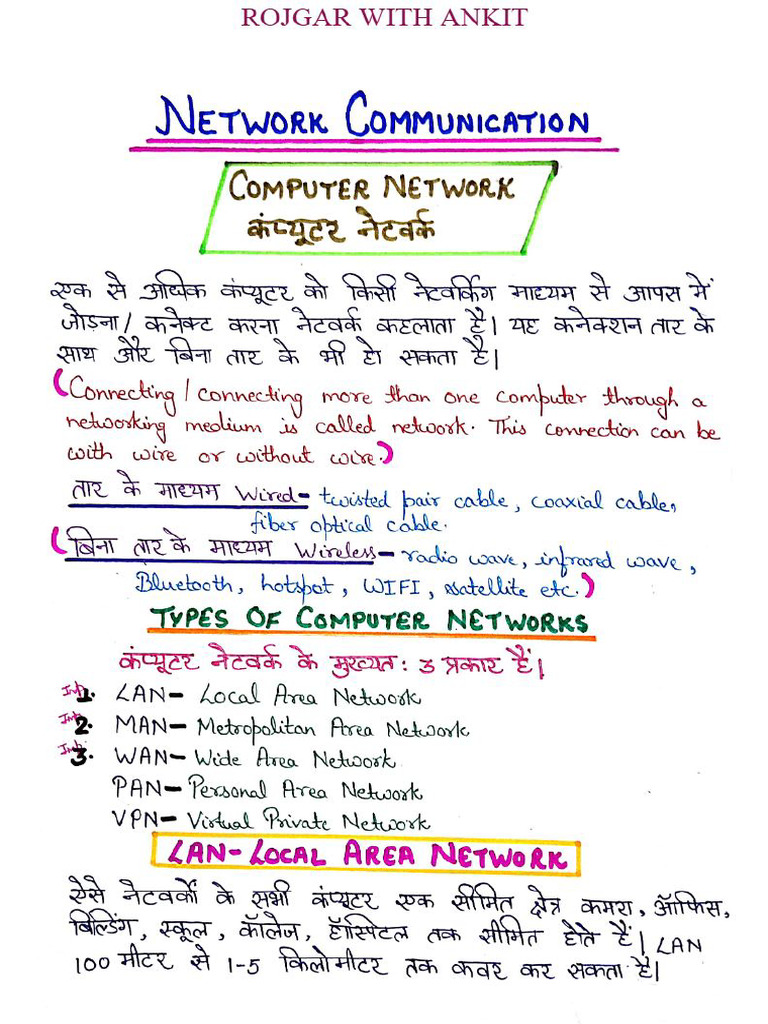 ROJGAR WITH ANKIT
NETWORK COMMUNICATION
COMPUTER NETWORK
कंप्यूटर नेटवर्क
एक से अधिक कंप्यूटर को किसी नेटवर्किंग माध्यम से आपस में
जोडना/ कनेक्ट करना नेटवर्क कहलाता है। यह कनेक्शन तार के
साथ और बिना तार के भी हो सकता है।
(Connecting/connecting more than one computer through a
networking medium is called network. This connection can be
with wire or without wire.)
तार के माध्यम Wired- twisted pair cable, coaxial cable,
fiber optical cable.
(बिना तार के माध्यम Wireless- radio wave, infrared wave,
Bluetooth, hotspot, WIFI, satellite etc.)
TYPES OF COMPUTER NETWORKS
कंप्यूटर नेटवर्क के मुख्यत: 3 प्रकार हैं।
Imp. 1. LAN- Local Area Network
Imp. 2. MAN- Metropolitan Area Network
Imp. 3. WAN- Wide Area Network
PAN- Personal Area Network
VPN- Virtual Private Network
LAN-LOCAL AREA NETWORK
ऐसे नेटवर्कों के सभी कंप्यूटर एक सीमित क्षेत्र कमरा, ऑफिस,
बिल्डिंग, स्कूल, कॉलेज, हॉस्पिटल तक सीमित होते हैं। LAN
100 मीटर से 1-5 किलोमीटर तक कवर कर सकता है।